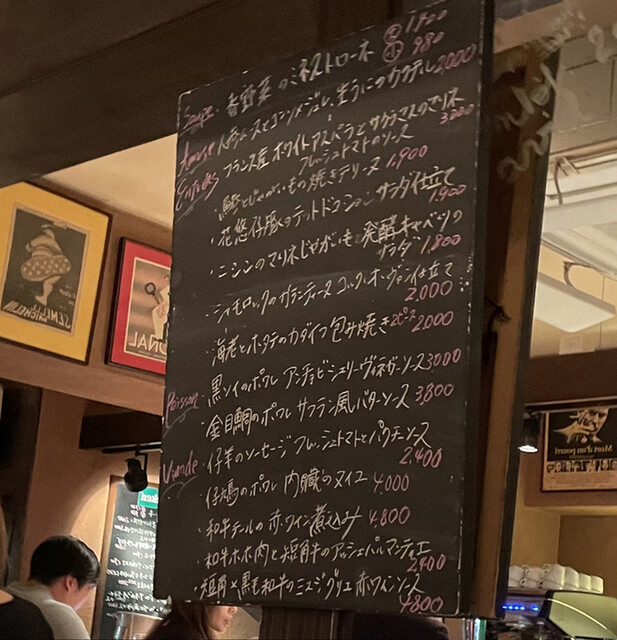 Soupe・香野菜のミネストローネ 大1,400
小980
Amuse 人参ムースとコンソメジュレ、生うにのカクテル 2,000
Entrées フランス産ホワイトアスパラとサクラマスのマリネ
フレッシュトマトのソース 3,000
・鰹とじゃがいもの焼きテリーヌ 1,900
・花悠仔豚のテットドゥコション サラダ仕立て
1,900
・ニシンのマリネじゃがいもと発酵キャベツの
サラダ 1,800
・シャモロックのガランティーヌ コック・オ・ヴァン仕立て
2,000
・海老とホタテのカダイフ包み焼き 2ピース 2,000
Poisson・黒ソイのポワレ アンチョビシェリーヴィネガーソース 3,000
・金目鯛のポワレ サフラン風バターソース 3,800
Viande・仔羊のソーセージ フレッシュトマトとパクチーソース
2,400
・仔鳩のポワレ 内臓のヌイユ 4,000
・和牛テールの赤ワイン煮込み 4,800
・和牛ホホ肉と短角牛のアッシェパルマンティエ
2,400
・短角と黒毛和牛のミュジグリエ 赤ワインソース
4800